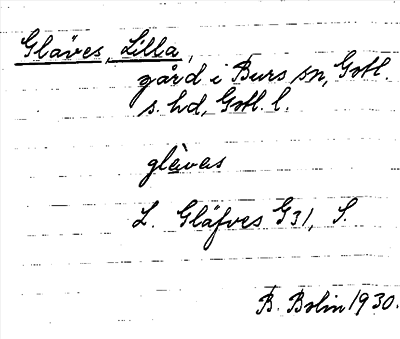 Gläves, Lilla,
gård i Burs sn, Gotl.
s. hd, Gotl. l.
glàvas
L. Gläfves G31, S.
B. Bolin 1930.